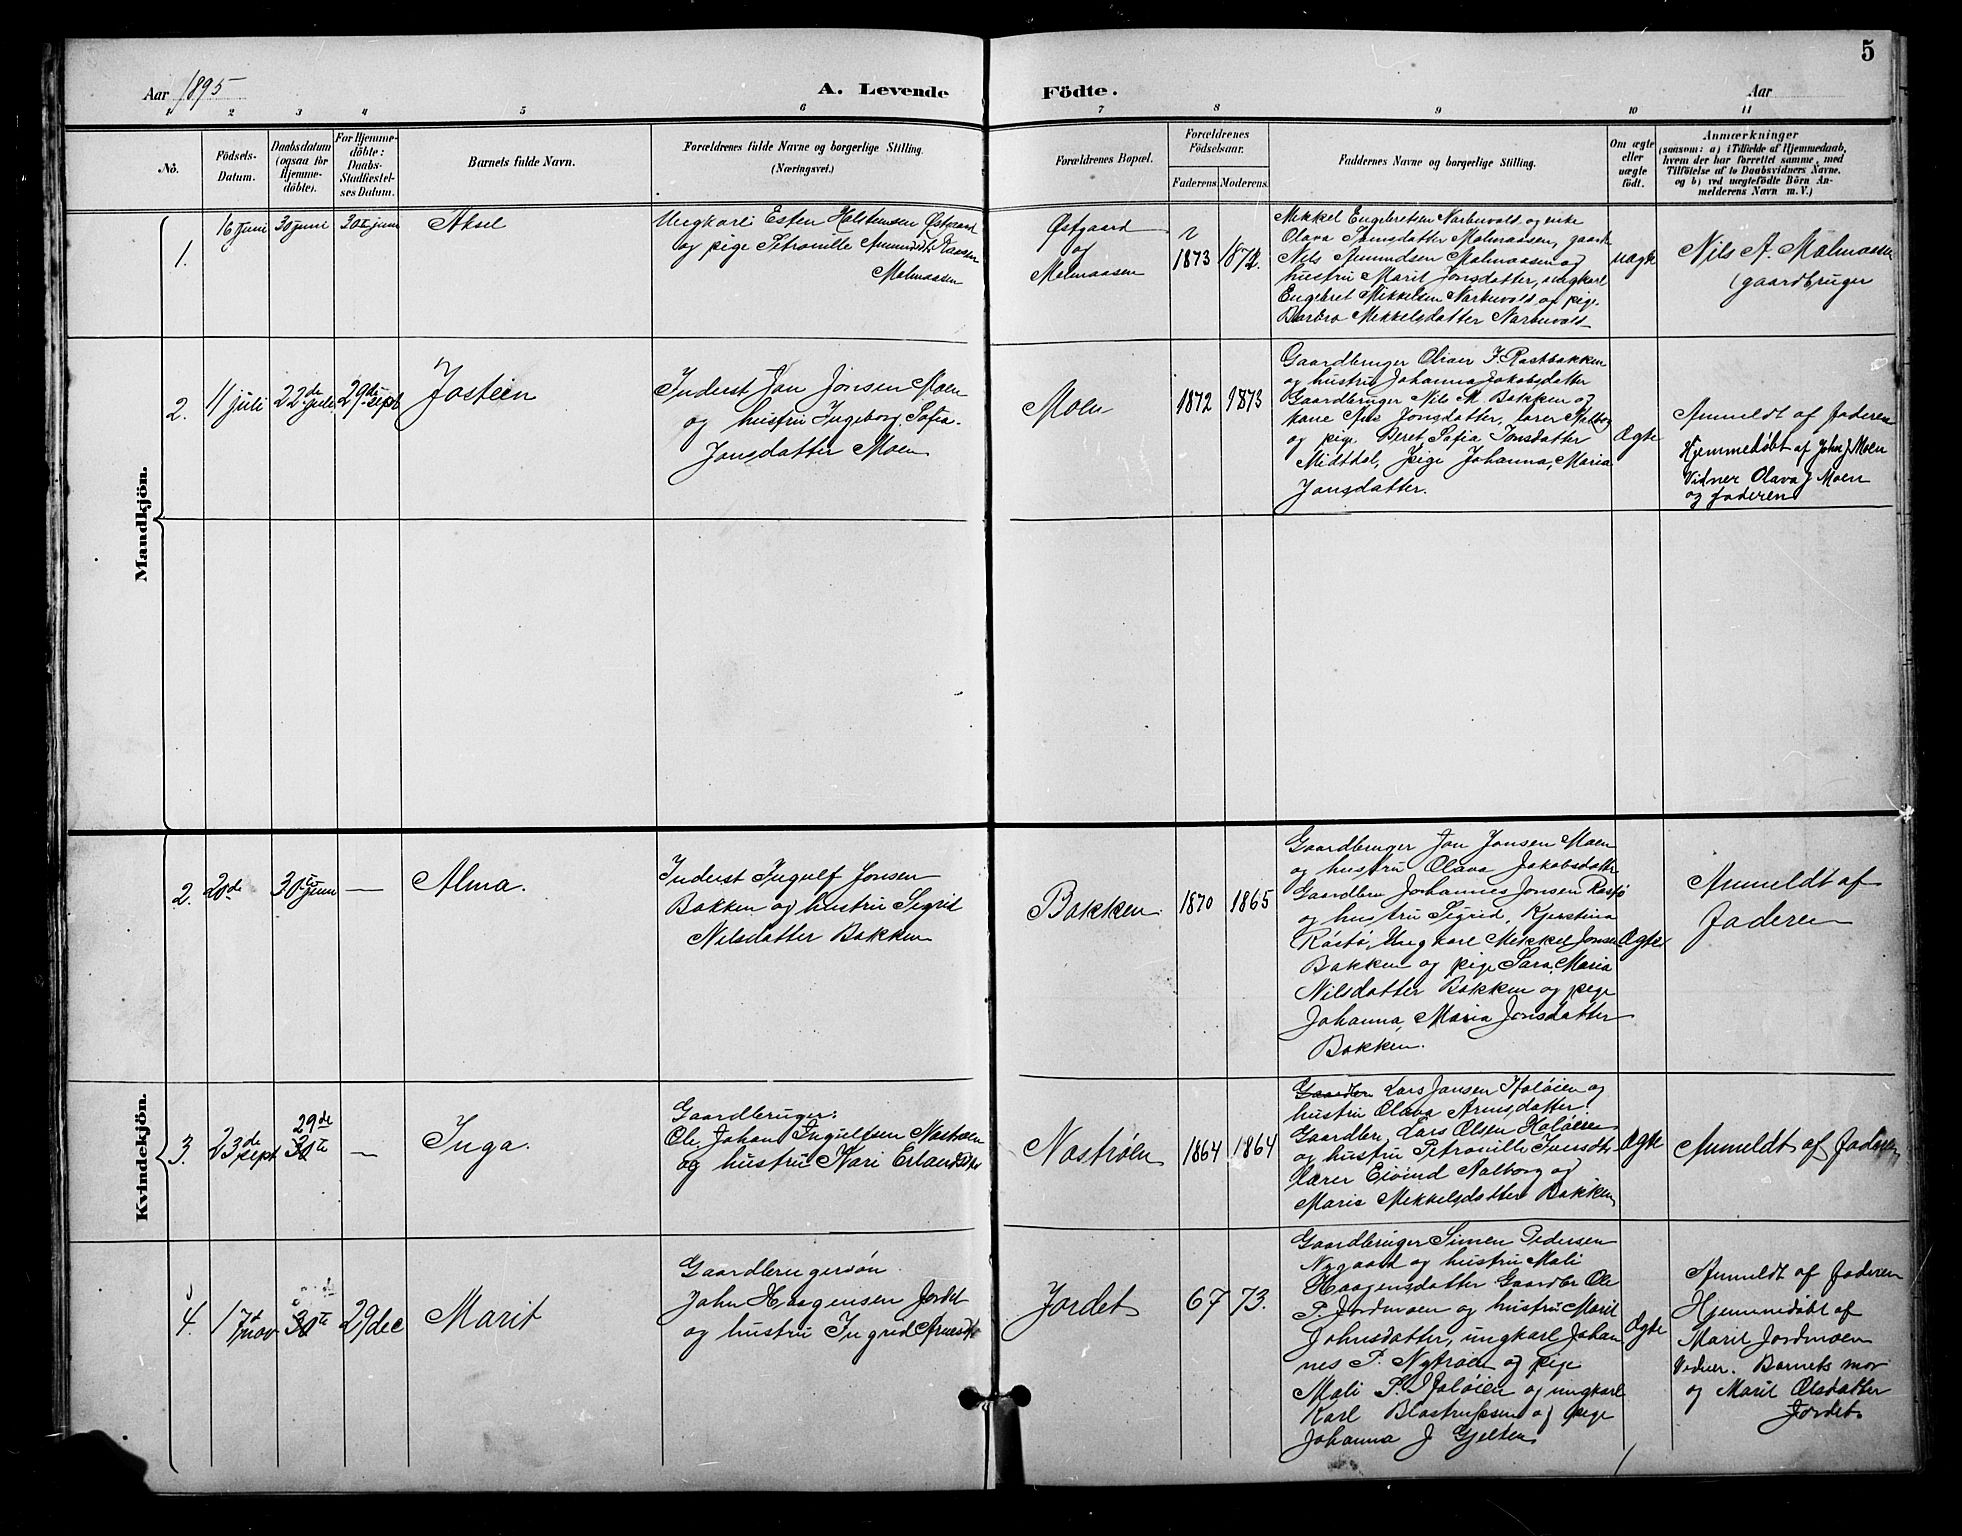 5
Aar 1895
A. Levende Födte.
Aar
1 2 3 4 5 6 7 8 9 10 11
No.
Födsels-
Datum.
Daabsdatum
(ogsaa for
Hjemme-
döbte).
For Hjemme-
döbte:
Daabs-
Stadfæstel-
ses Datum.
Barnets fulde Navn.
Forældrenes fulde Navne og borgerlige Stilling.
(Næringsvei.)
Forældrenes Bopæl.
Forældrenes
Födselsaar.
Faderens.
Moderens.
Faddernes Navne og borgerlige Stilling.
Om ægte
eller
uægte
födt.
Anmærkninger
(saasom: a) i Tilfælde af Hjemmedaab,
hvem der har forrettet samme, med
Tilföielse af to Daabsvidners Navne,
og b) ved uægtefödte Börn An-
melderens Navn m. V.)
Mandkjön.
1.
16 juni
30 juni
30te juni
Aksel
Ungkarl Esten Halstensen Østgaard
og pige Petronille Amundsdt
Malmaasen
Østgaard
og
Malmaasen
1873
1872.
Mikkel Engebretsen Narbuvold og
Olava Jonsdatter Malmaasen, gaardb
Nils Amundsen Malmaasen og
hustru Marit Jonsdatter, ungkarl
Engebret Mikkelsen Narbuvold og pige
Barbro Mikkelsdatter Narbuvold
uægte
Nils A. Malmaasen
(gaardbruger
2.
11 juli
22de juli
29de sept
Jostein
Inderst Jon Jonsen Moen
og hustru Ingeborg Sofia
Jonsdatter Moen
Moen
1872
1873
Gaardbruger Oliver J. Rastbakken
og hustru Johanna Jakobsdatter
Gaardbruger Nils M. Bakken og
kone Jonsdatter, lærer Aalborg
og pige Beret Sofia Jonsdatter
Midtdal, pige Johanna, Maria
Jonsdatter.
Ægte
Anmeldt af faderen
Hjemmedøbt af John J Moen
Vidner Olava J Moen
og faderen
Kvindekjön.
2.
20de
30te juni
—
Alma.
Inderst Ingulf Jonsen
Bakken og hustru Sigrid
Nilsdatter Bakken
Bakken
1870
1865
Gaardbruger Jon Jonsen Moen
og hustru Olava Jakobsdatter
Gaardbru Johannes Jonsen Røstø
og hustru Sigrid, Kjerstina
Røstø, Ungkarl Mikkel Jonsen
Bakken og pige Sara, Maria
Nilsdatter Bakken og pige
Johanna, Maria Jonsdatter
Bakken.
Ægte
Anmeldt af
faderen
3.
23de sept
29de
30te
—
Inga.
Gaardbruger:
Ole, Johan Ingulfsen Nastrøen
og hustru Kari Erlandsdtr
Nastrøen
1864
1864
Gaardbru Lars Jansen Holøien og
hustru Olava Arnesdatter.
Gaardbr, Lars Olsen Holøien
og hustru Petronille Iversdtr
lærer Eivind Aalborg og
Marie Mikkelsdatter Bakken
Ægte
Anmeldt af faderen
4.
17d nov
30te
29 dec
Marit
Gaardbrugersøn
John Haagensen Jordet
og hustru Ingrid Arnesdtr
Jordet
67
73.
Gaardbruger Simen Pedersen
Nygaard og hustru Mali
Haagensdatter Gaardbr Ole
P. Jordmoen og hustru Marit
Johnsdatter, ungkarl Johan
nes P. Nytrøen og pige
Mali P. Holøien og ungkarl
Karl og pige
Johanna J Gjelten
Ægte
Anmeldt af faderen
Hjemmedøbt af
Marit Jordmoen
Vidner. Barnets mor
og Marit Olsdatter
Jordet.